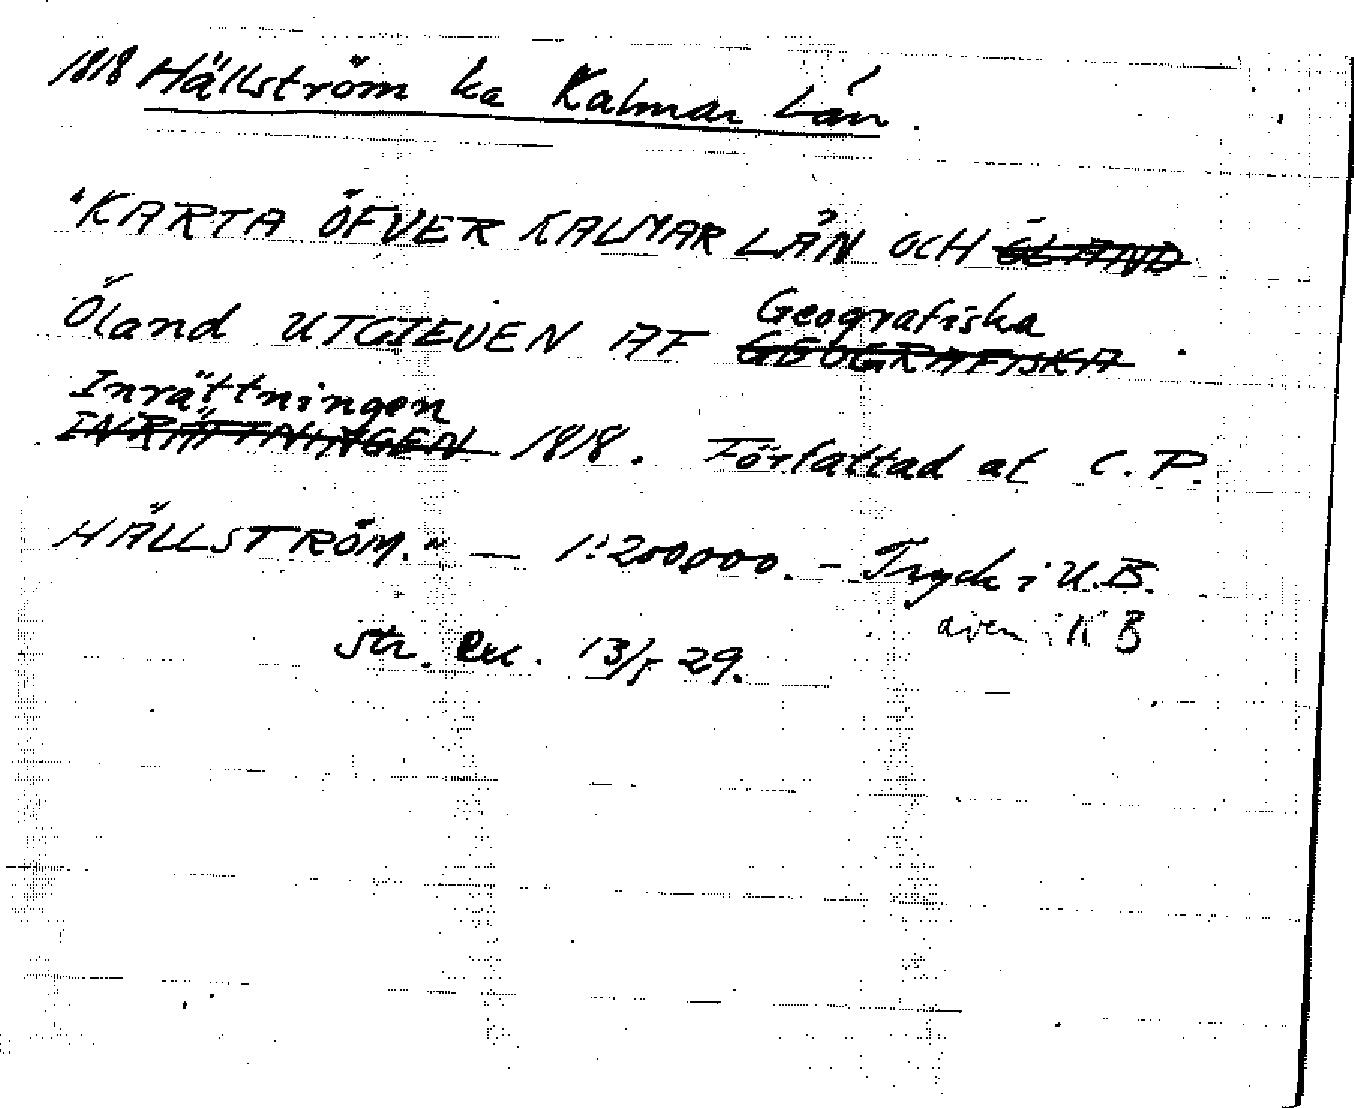 1818 Hällström ka Kalmar Län.
"KARTA ÖFVER KALMAR LÄN OCH ÖLAND
Öland UTGIEVEN AF Geografiska GEOGRAFISKA
Inrättningen
INRÄTTNINGEN 1818. Författad af C.P.
HÄLLSTRÖM." — 1:200000. – Tryck i U.B.
även i KB
Str. ex. 13/5 29.